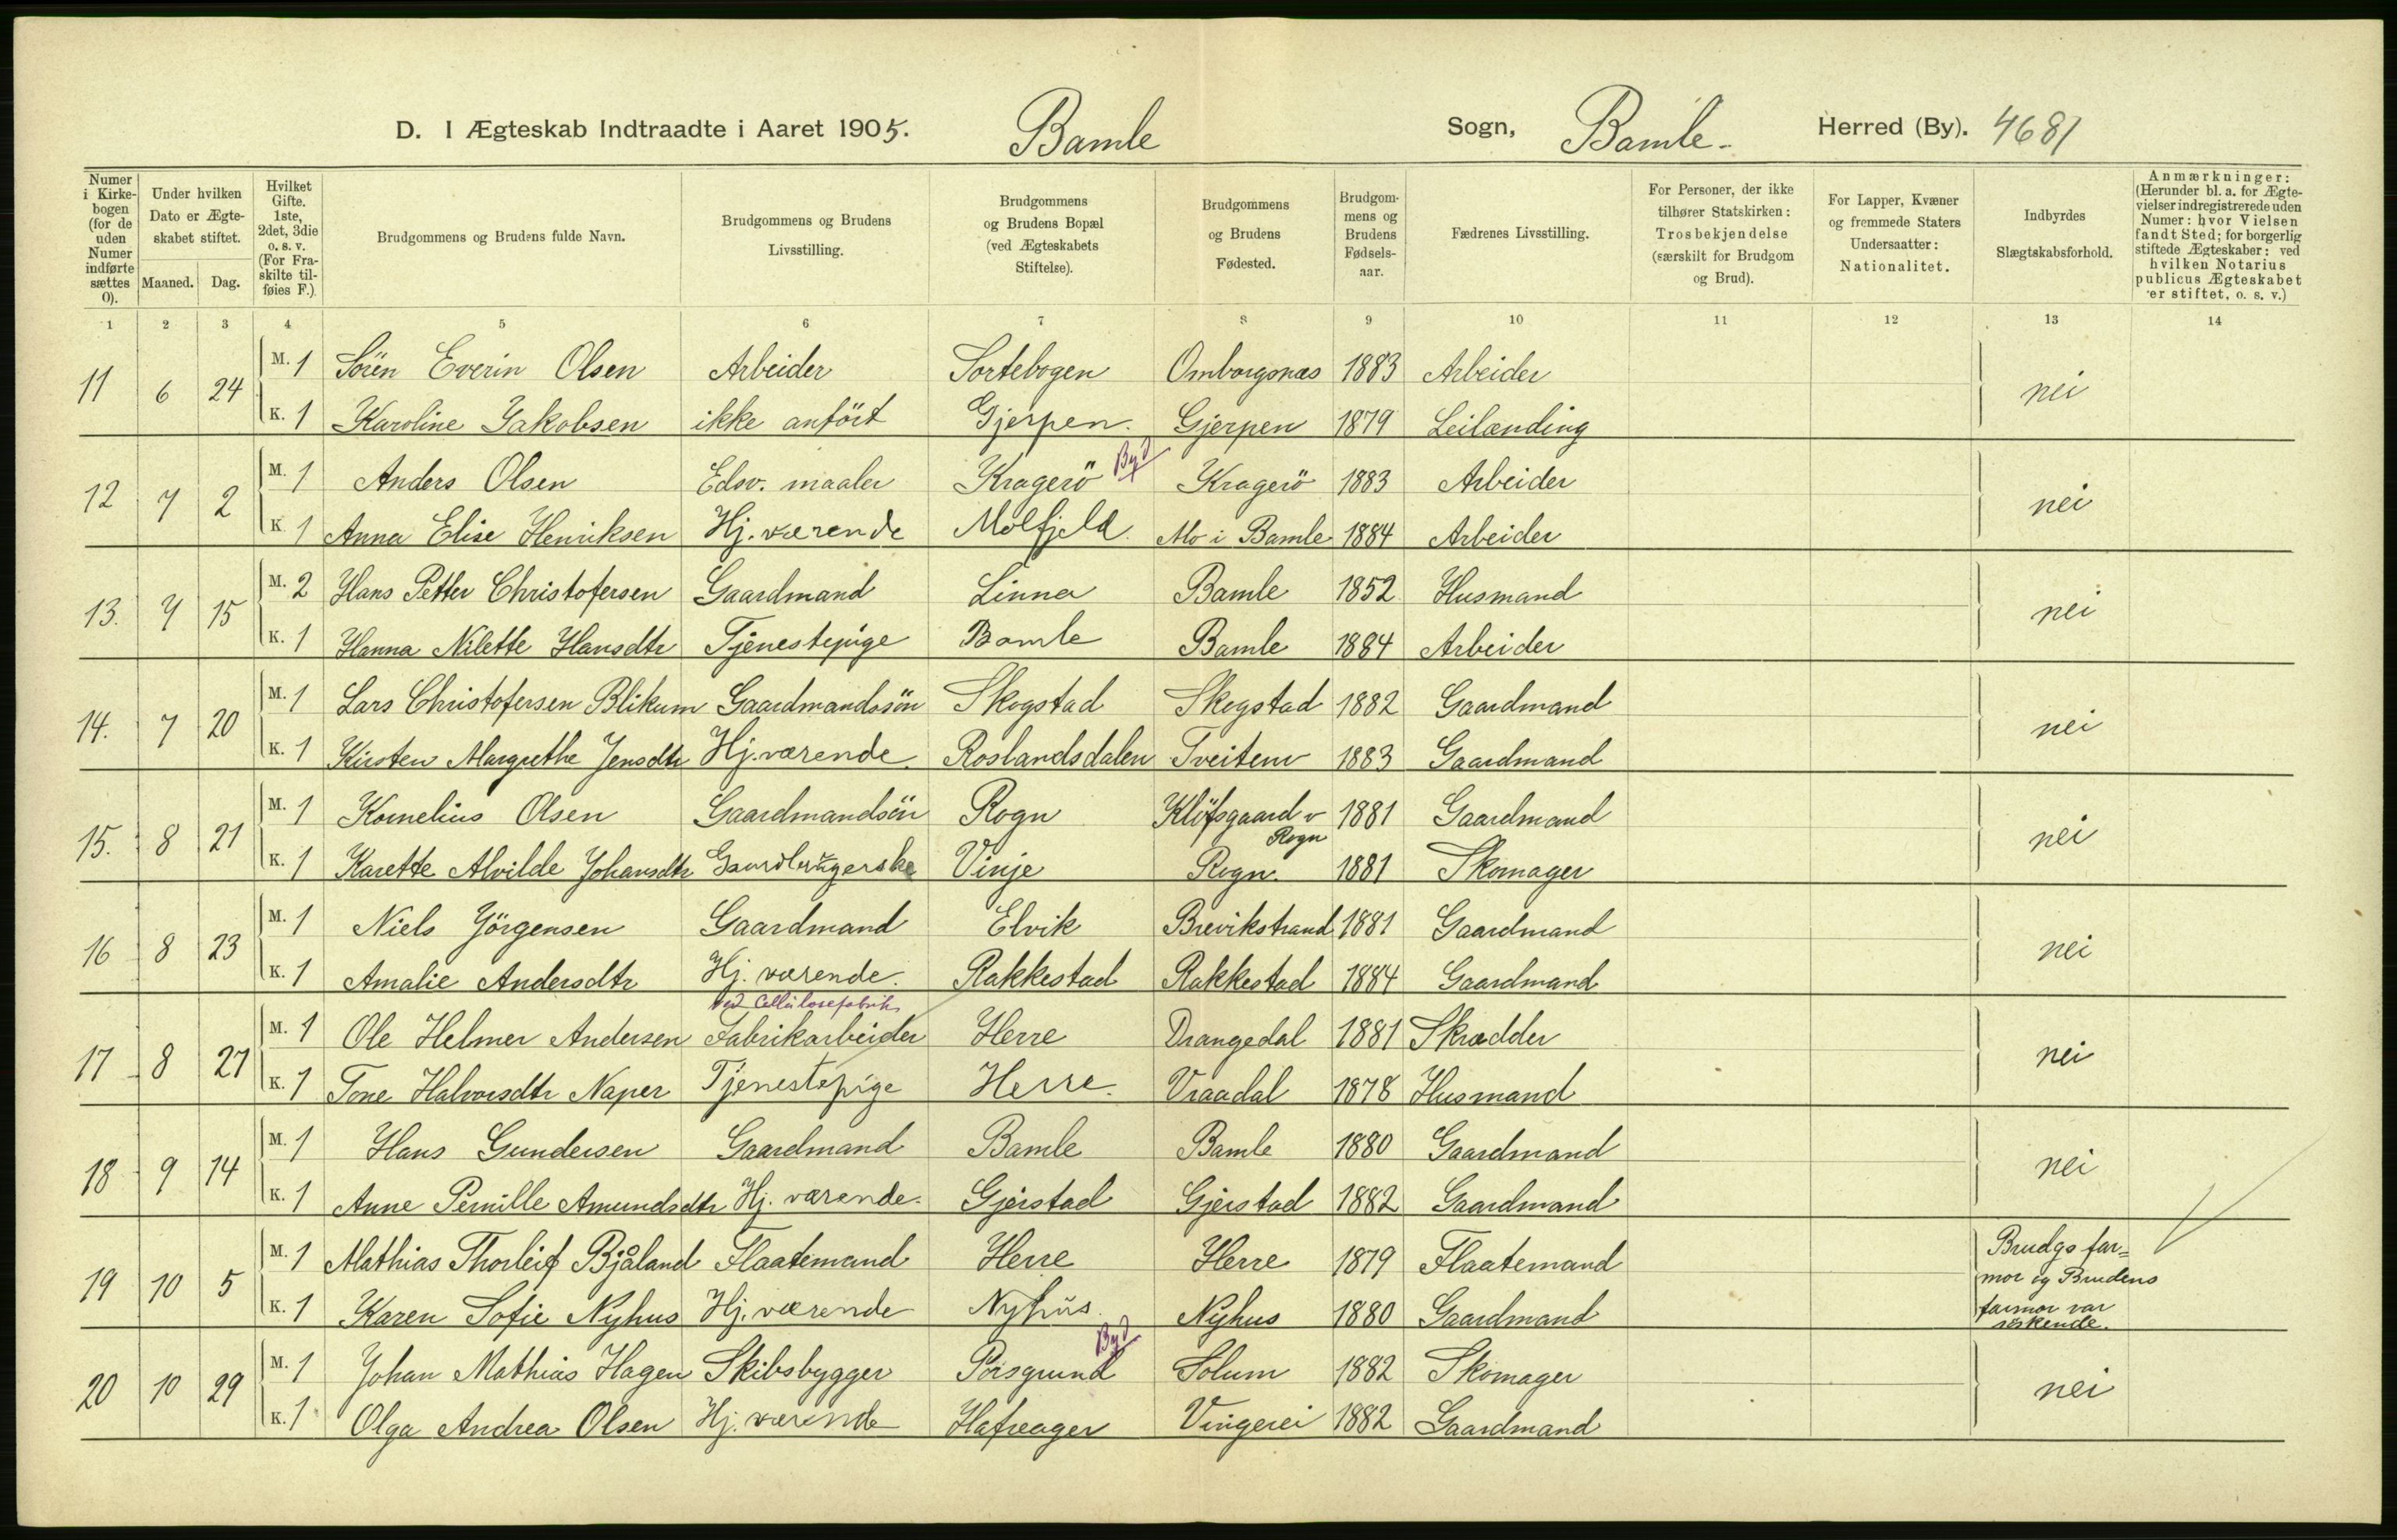 D. I Ægteskab Indtraadte i Aaret 1905. Bamle Sogn, Bamle. Herred (By). 4681
Numer i Kirkebogen (for de uden Numer indførte sættes 0).
Under hvilken Dato er Ægteskabet stiftet.
Maaned. Dag.
Hvilket Gifte. 1ste, 2det, 3die o. s. v. (For Fraskilte tilføies F.)
Brudgommens og Brudens fulde Navn.
Brudgommens og Brudens Livsstilling.
Brudgommens og Brudens Bopæl (ved Ægteskabets Stiftelse).
Brudgommens og Brudens Fødested.
Brudgommens og Brudens Fødselsaar.
Fædrenes Livsstilling.
For Personer, der ikke tilhører Statskirken: Trosbekjendelse (særskilt for Brudgom og Brud).
For Lapper, Kvæner og fremmede Staters Undersaatter: Nationalitet.
Indbyrdes Slægtskabsforhold.
Anmærkninger: (Herunder bl. a. for Ægtevielser indregistrerede uden Numer: hvor Vielsen fandt Sted; for borgerlig stiftede Ægteskaber: ved hvilken Notarius publicus Ægteskabet er stiftet, o. s. v.)
1 2 3 4 5 6 7 8 9 10 11 12 13 14
11 6 24 M. 1 Sören Everin Olsen Arbeider Sortebogen Omborgsnæs 1883 Arbeider nei
K. 1 Karoline Jakobsen ikke anfört Gjerpen. Gjerpen 1879 Leilænding
12 7 2 M. 1 Anders Olsen Edsv. maaler Kragerö Byd Kragerö 1883 Arbeider nei
K. 1 Anna Elise Henriksen Hj. værende Molfjeld. Mo i Bamle 1884 Arbeider
13. 7 15 M. 2 Hans Petter Christofersen Gaardmand Linna Bamle 1852 Husmand nei
K. 1 Hanna Nilette Hansdtr Tjenestepige Bamle Bamle 1884 Arbeider
14. 7 20 M. 1 Lars Christofersen Blikum Gaardmandssön Skogstad Skogstad 1882 Gaardmand nei
K. 1 Kirsten Margrethe Jensdtr Hj. værende. Roslandsdalen Tveiten 1883 Gaardmand
15. 8 21 M. 1 Kornelius Olsen Gaardmandsön Rogn Klöfsgaard v Rogn 1881 Gaardmand nei
K. 1 Karette Alvilde Johansdtr Gaardbrugerske Vinje Rogn. 1881 Skomager
16 8 23 M. 1 Niels Jörgensen Gaardmand Elvik Brevikstrand 1881 Gaardmand nei
K. 1 Amalie Andersdtr Hj. værende. Rakkestad Rakkestad 1884 Gaardmand
ved Cellulosefabrik
17 8 27 M. 1 Ole Helmer Andersen Fabrikarbeider Herre Drangedal 1881 Skrædder nei
K. 1 Tone Halvorsdtr Naper Tjenestepige Herre. Vraadal 1878 Husmand
18 9 14 M. 1 Hans Gundersen Gaardmand Bamle Bamle 1880 Gaardmand nei
K. 1 Anne Pernille Amundsdtr Hj. værende. Gjerstad Gjerstad 1882 Gaardmand
19 10 5 M. 1 Mathias Thorleif Bjåland Flaatemand Herre Herre 1879 Flaatemand Brudgs far=
mor og Brudens
K. 1 Karen Sofie Nyhus Hj. værende Nyhus. Nyhus 1880 Gaardmand farmor var
söskende.
20 10 29 M. 1 Johan Mathias Hagen Skibsbygger Porsgrund Byd Solum 1882 Skomager nei
K. 1 Olga Andrea Olsen Hj. værende Hafreager Vingerei 1882 Gaardmand